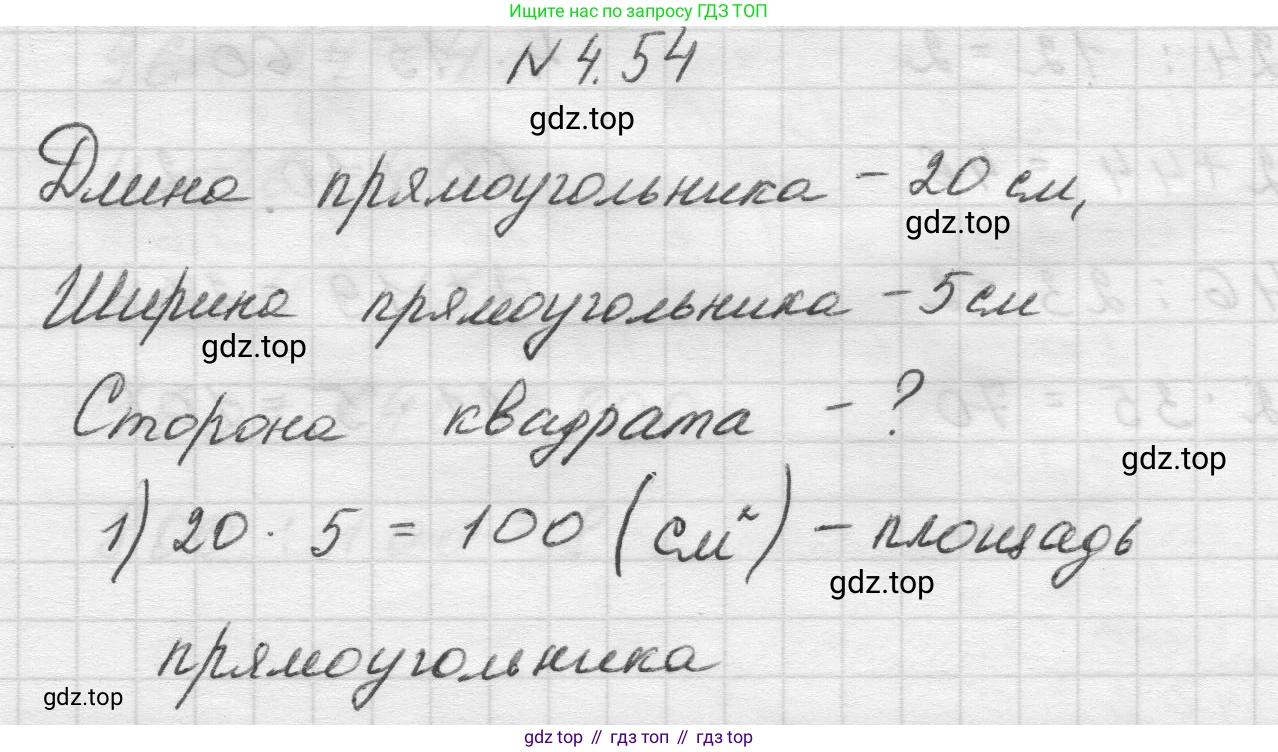 Ищите нас по запросу ГДЗ ТОП
N 4.54
gdz.top
Длина прямоугольника - 20 см,
gdz.top
Ширина прямоугольника - 5 см
gdz.top
Сторона квадрата - ?
gdz.top
1) 20 · 5 = 100 (см²) - площадь
gdz.top
прямоугольника
gdz.top
gdz top // гдз топ // гдз top